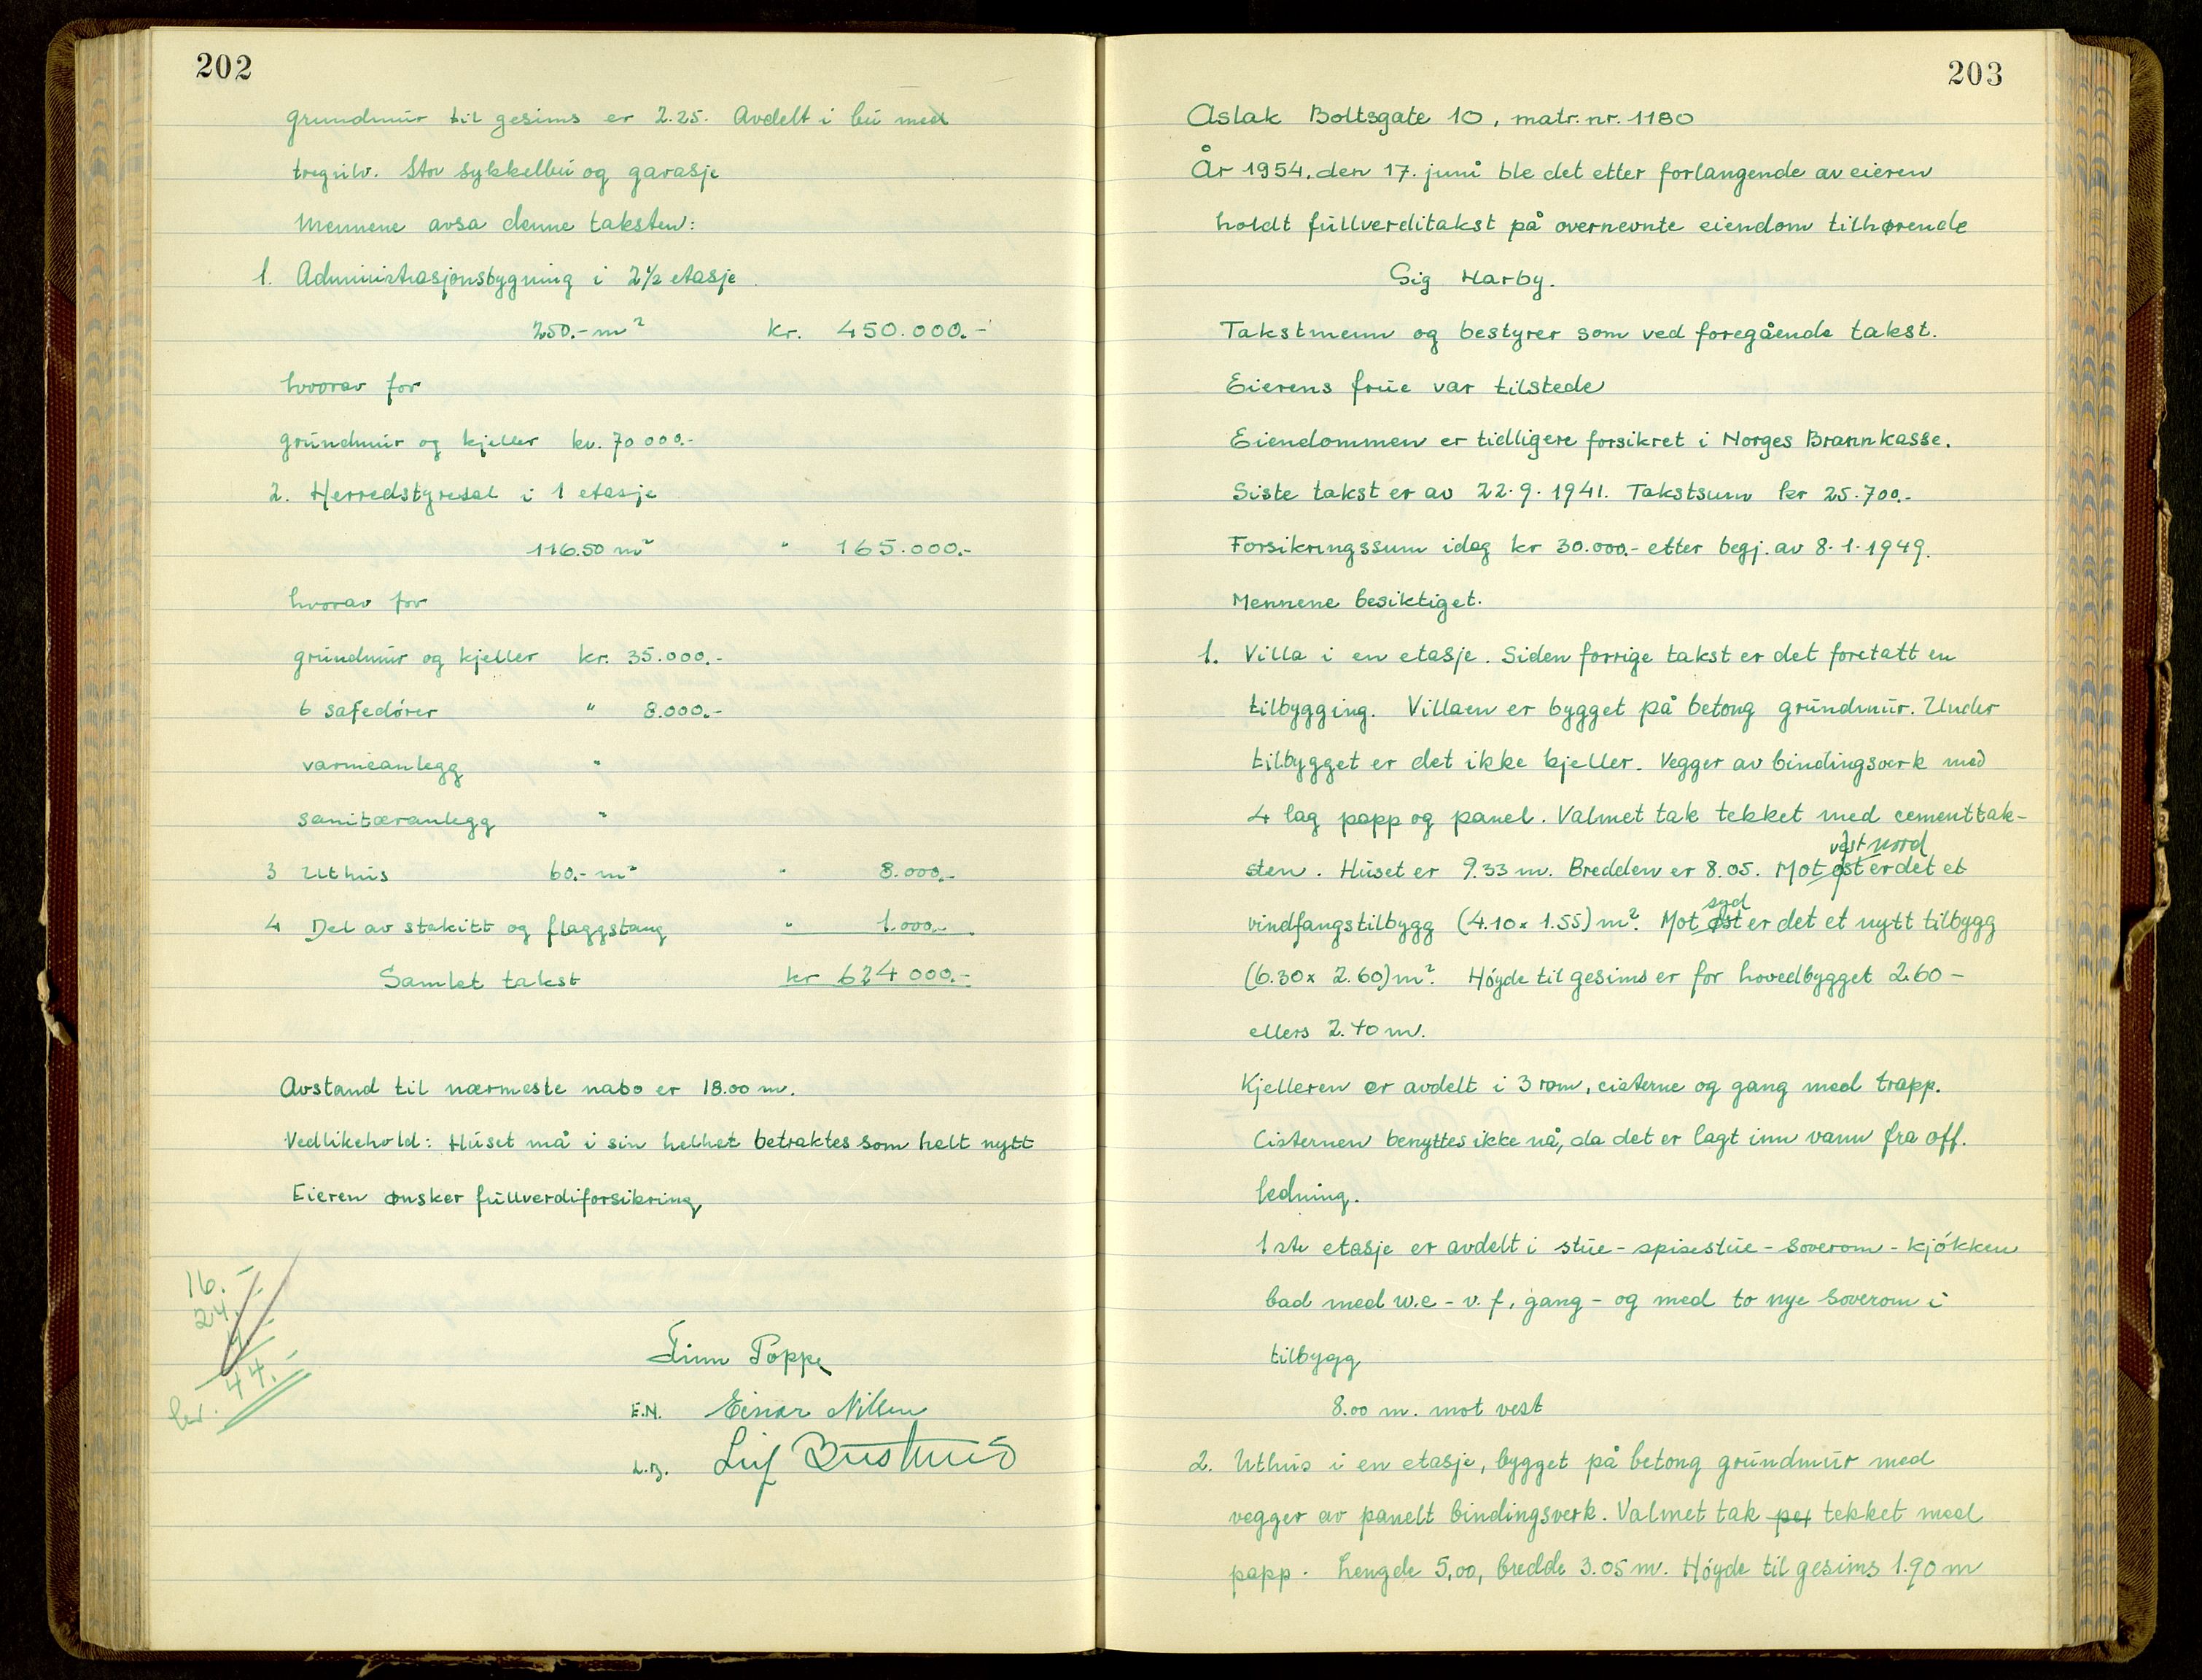 202
grundmur til gesims er 2.25. Avdelt i bu med
tregulv. Stor sykkelbu og garasje
Mennene avsa denne taksten:
1. Administrasjonsbygning i 2½ etasje.
250.- m² kr. 450.000.-
hvorav for
grundmur og kjeller kr. 70 000.-
2. Herredstyresal i 1 etasje
116.50 m² " 165.000.-
hvorav for
grundmur og kjeller kr. 35.000.-
6 safedører " 8.000.-
varmeanlegg "
sanitæranlegg "
3 Uthus 60.- m² " 8.000.-
4 Del av stakitt og flaggstang " 1.000.-
Samlet takst kr 624 000.-
Avstand til nærmeste nabo er 18.00 m.
Vedlikehold: Huset må i sin helhet betraktes som helt nytt
Eieren ønsker fullverdiforsikring
16.-
24.-
4.-
kr. 44.-
Finn Poppe
E.N. Einar Nilsen
L.B. Leif
203
Aslak Boltsgate 10, matr. nr. 1180
År 1954, den 17. juni ble det etter forlangende av eieren
holdt fullverditakst på overnevnte eiendom tilhørende
Sig Harby.
Takstmenn og bestyrer som ved foregående takst.
Eierens frue var tilstede
Eiendommen er tidligere forsikret i Norges Brannkasse.
Siste takst er av 22.9.1941. Takstsum kr 25.700.-
Forsikringssum idag kr 30.000.- etter begj. av 8.1.1949.
Mennene besiktiget.
1. Villa i en etasje. Siden forrige takst er det foretatt en
tilbygging. Villaen er bygget på betong grundmur. Under
tilbygget er det ikke kjeller. Vegger av bindingsverk med
4 lag papp og panel. Valmet tak tekket med cementtak-
vest nord
sten. Huset er 9.33 m. Bredden er 8.05. Mot øst er det et
syd
vindfangstilbygg (4.10 x 1.55) m². Mot øst er det et nytt tilbygg
(6.30 x 2.60) m². Høyde til gesims er for hovedbygget 2.60 -
ellers 2.40 m.
Kjelleren er avdelt i 3 rom, cisterne og gang med trapp.
Cisternen benyttes ikke nå, da det er lagt inn vann fra off.
ledning.
1ste etasje er avdelt i stue - spisestue - soverom - kjøkken
bad med w.c - v.f, gang - og med to nye soverom i
tilbygg
8.00 m. mot vest
2. Uthus i en etasje, bygget på betong grundmur med
vegger av panelt bindingsverk. Valmet tak pet tekket med
papp. Lengde 5,00, bredde 3.05 m. Høyde til gesims 1.90 m